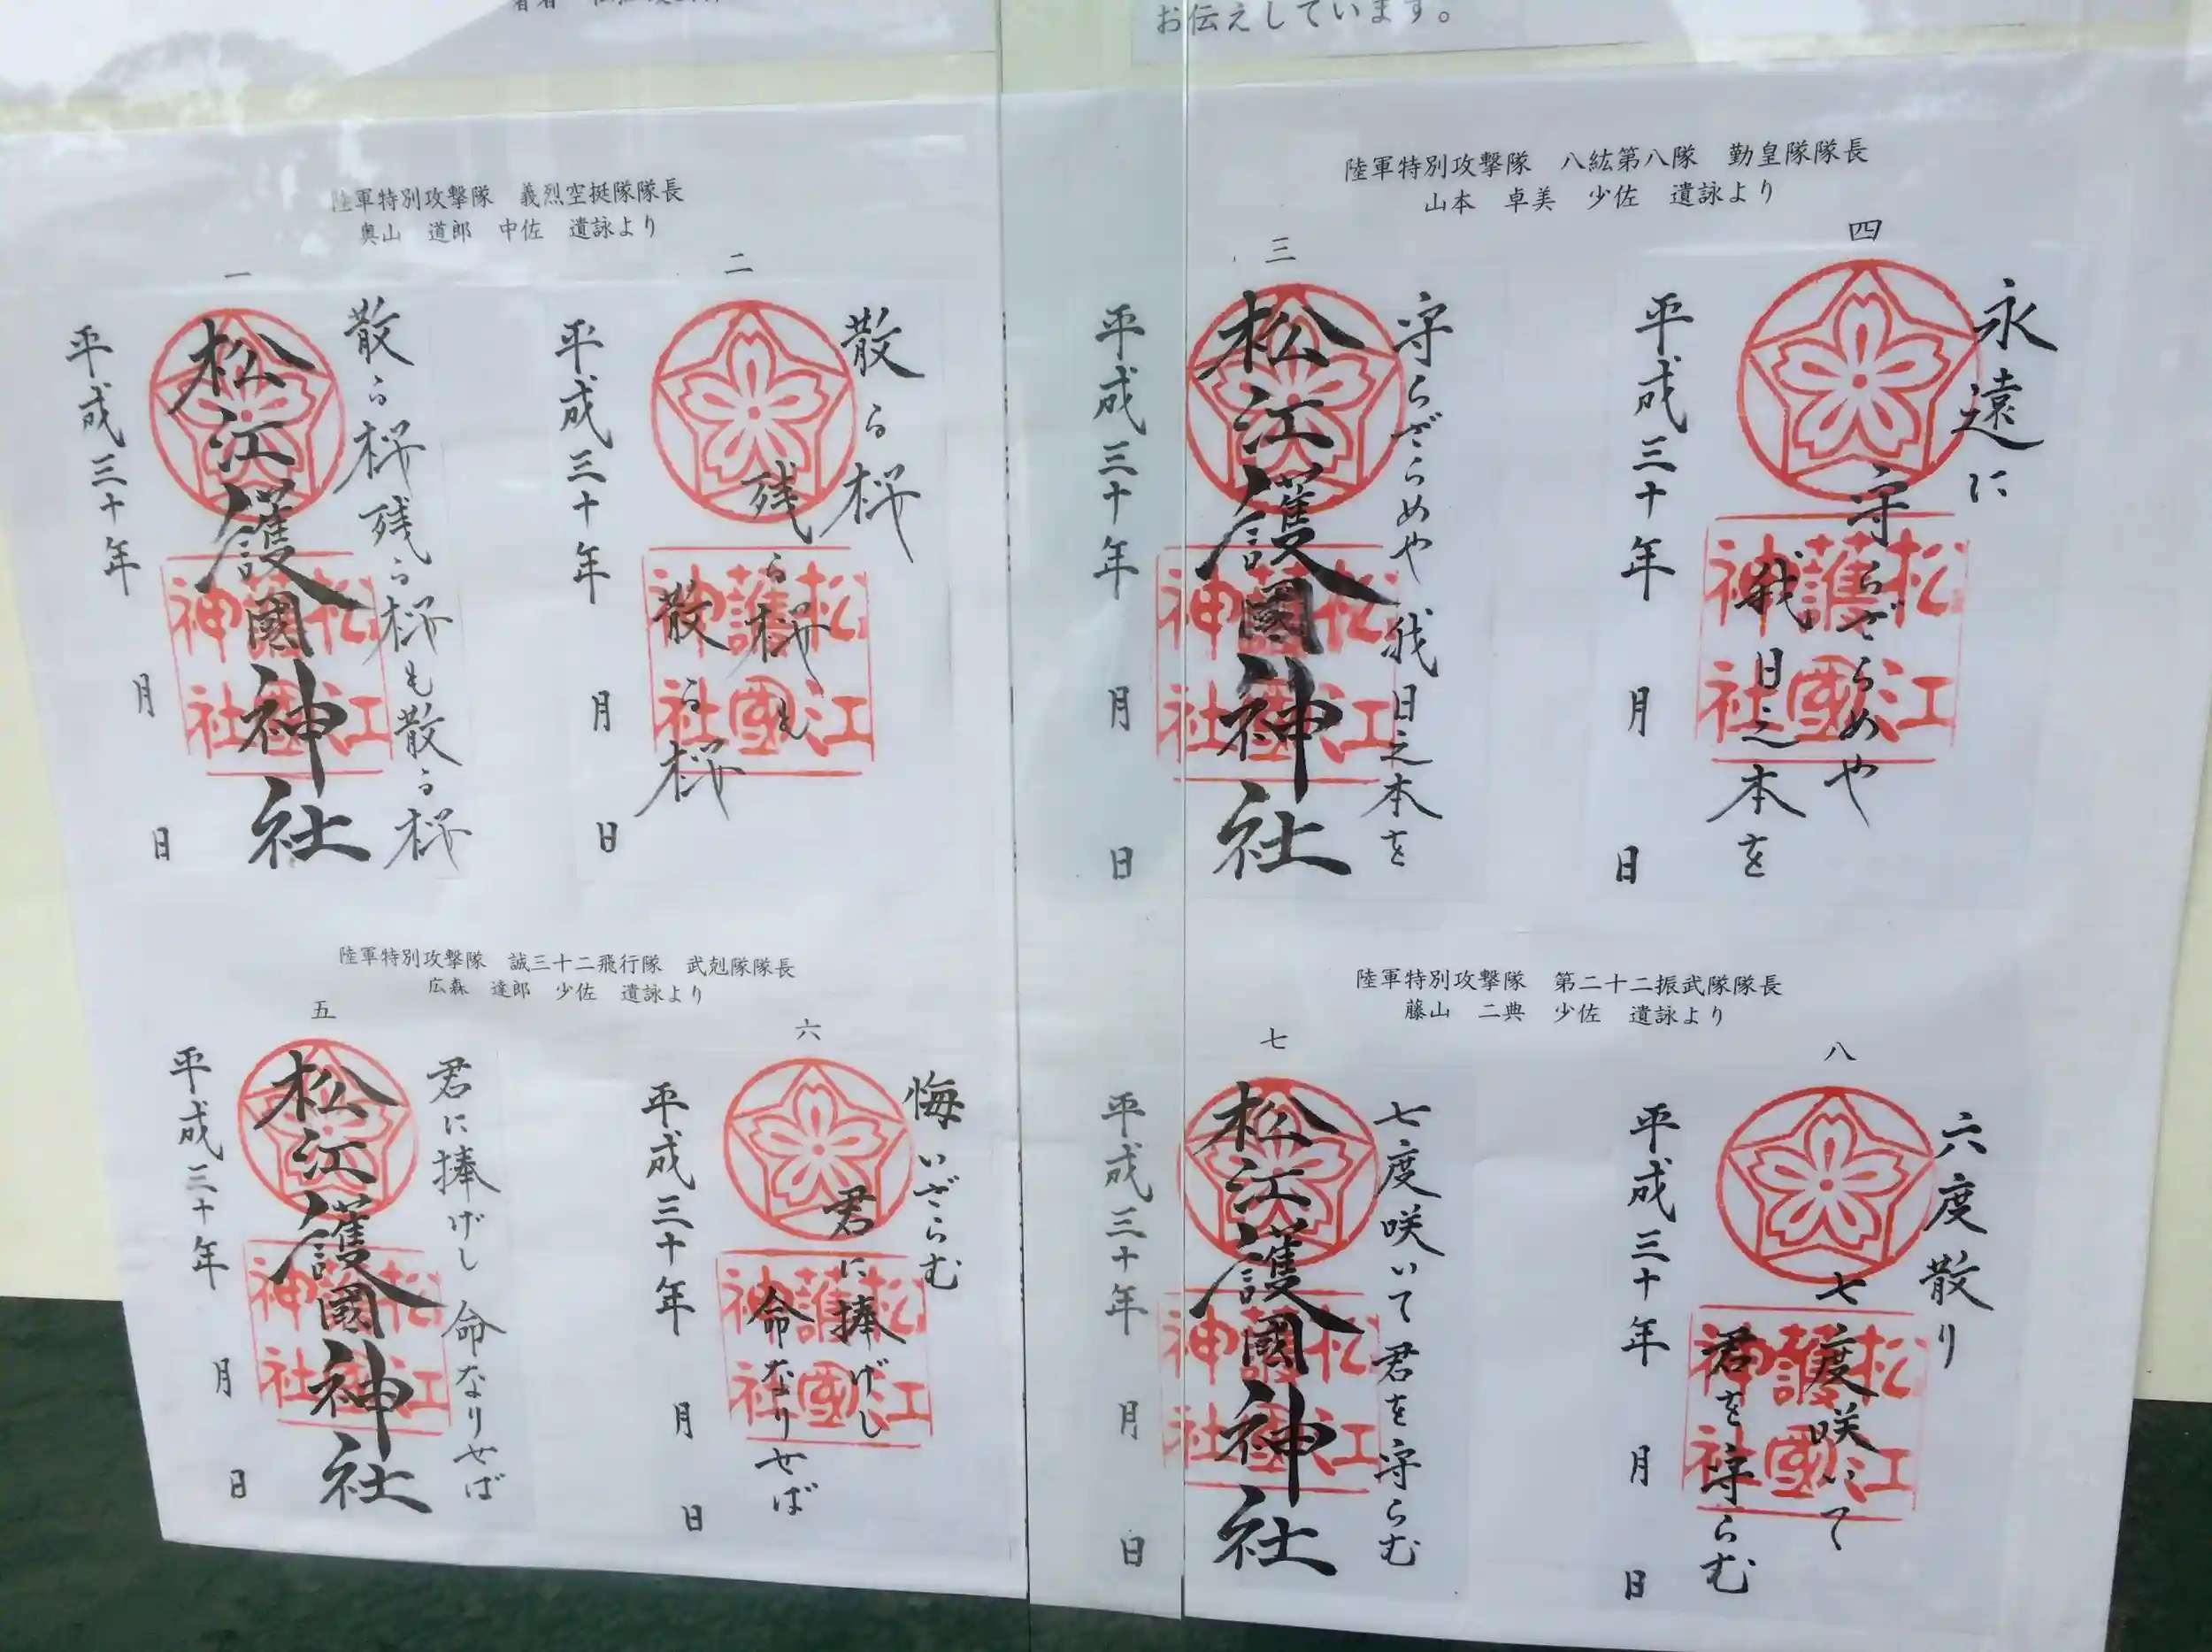 お伝えしています。
陸軍特別攻撃隊　義烈空挺隊隊長
奥山　道郎　中佐　遺詠より
一
散る桜残る桜も散る桜
松江護國神社
平成三十年　月　日
松江
護國
神社
二
散る桜
残る桜も
散る桜
平成三十年　月　日
松江
護國
神社
陸軍特別攻撃隊　八紘第八隊　勤皇隊隊長
山本　卓美　少佐　遺詠より
三
守らざらめや我日之本を
松江護國神社
平成三十年　月　日
松江
護國
神社
四
永遠に
守らざらめや
我日之本を
平成三十年　月　日
松江
護國
神社
陸軍特別攻撃隊　誠三十二飛行隊　武剋隊隊長
広森　達郎　少佐　遺詠より
五
君に捧げし命なりせば
松江護國神社
平成三十年　月　日
松江
護國
神社
六
悔いざらむ
君に捧げし
命なりせば
平成三十年　月　日
松江
護國
神社
陸軍特別攻撃隊　第二十二振武隊隊長
藤山　二典　少佐　遺詠より
七
七度咲いて君を守らむ
松江護國神社
平成三十年　月　日
松江
護國
神社
八
六度散り
七度咲いて
君を守らむ
平成三十年　月　日
松江
護國
神社